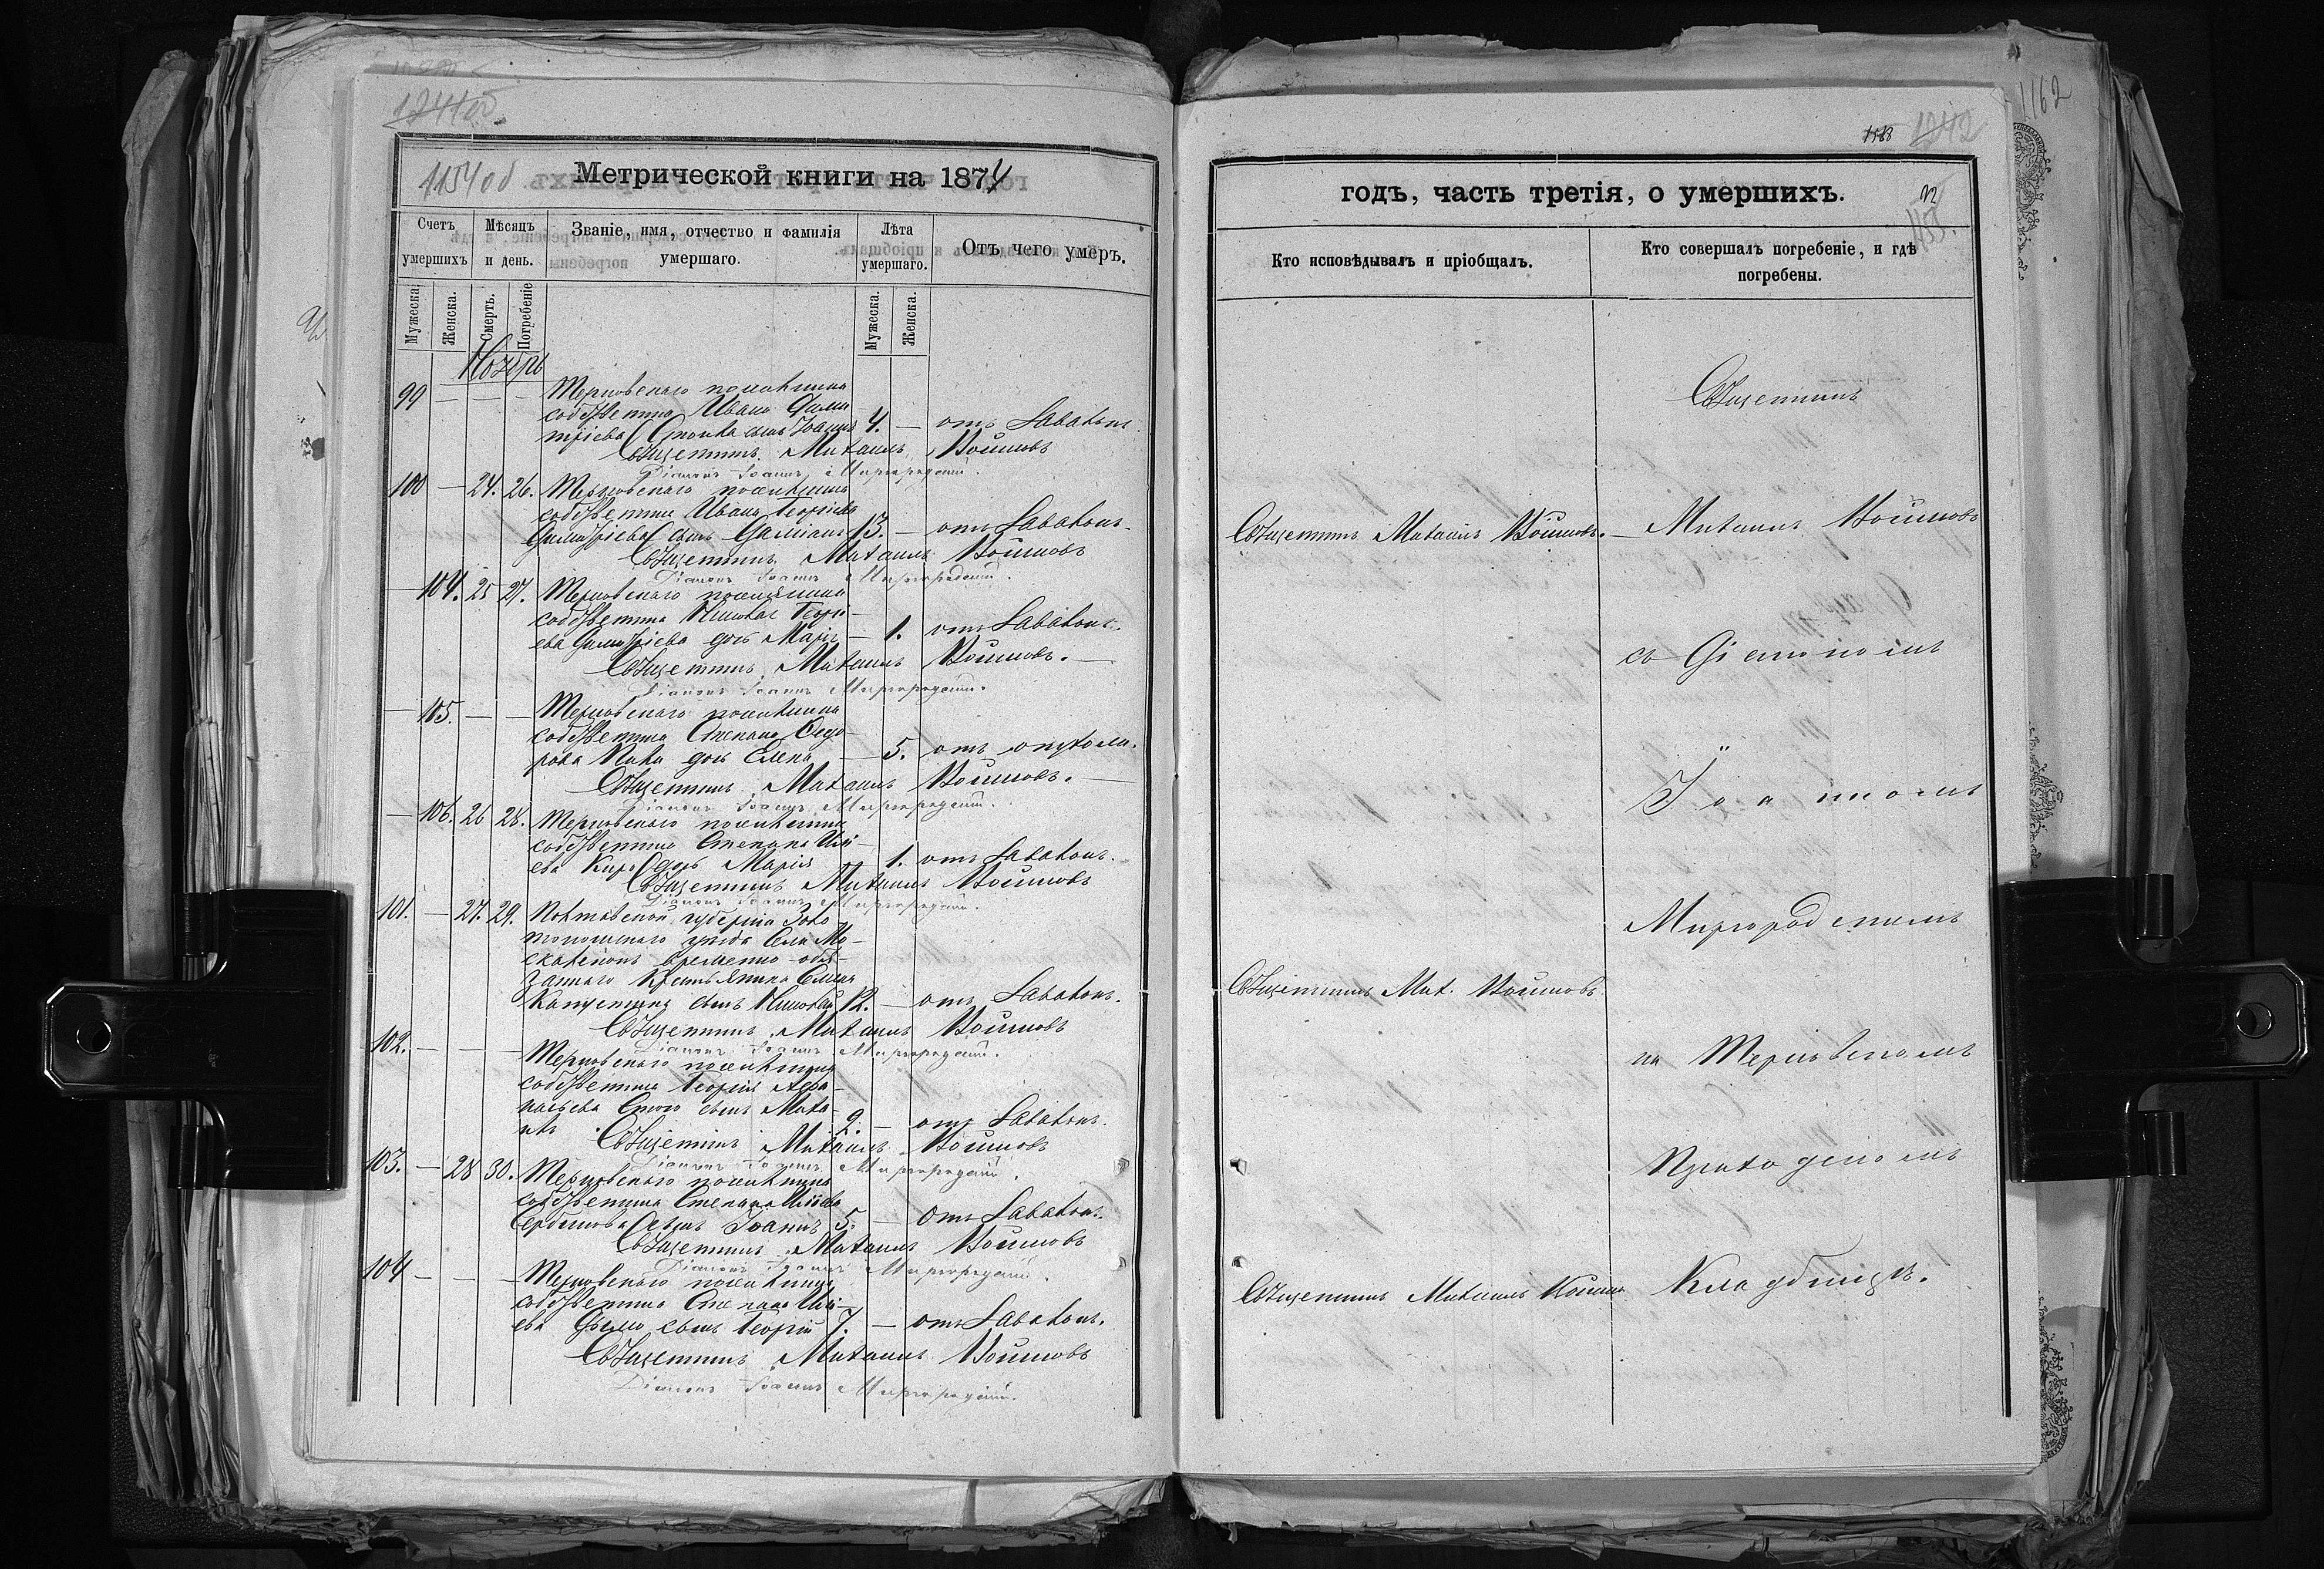 1154 об
Метрической книги на 1874
Счетъ умершихъ
Мѣсяцъ и день.
Званіе, имя, отчество и фамилія умершаго.
Лѣта умершаго.
Отъ чего умеръ.
Мужеска.
Женска.
Смерть.
Погребеніе
Мужеска.
Женска.
Ноябрь
99 — — —
Терновскаго поселянина
собственника Ивана Дими
тріева сынъ Іоаннъ 4. — отъ
Священникъ Михаилъ Войновъ
Діаконъ Іоаннъ Миргородскій.
100 — 24. 26. Терновскаго поселянина
собственника Ивана Георгіева
Димитріева сынъ 13. — отъ
Священникъ Михаилъ Войновъ
Діаконъ Іоаннъ Миргородскій.
— 104. 25 27. Терновскаго поселянина
собственника Николая Георгі-
ева Димитріева дочь Марія — 1. отъ
Священникъ Михаилъ Войновъ. —
Діаконъ Іоаннъ Миргородскій.
— 105. — — Терновскаго поселянина
собственника Степана Ѳедо-
рова дочь Елена — 5. отъ опухоли.
Священникъ Михаилъ Войновъ. —
Діаконъ Іоаннъ Миргородскій.
— 106. 26 28. Терновскаго поселянина
собственника Степана Илі-
ева дочь Марія 1. отъ
Священникъ Михаилъ Войновъ
Діаконъ Іоаннъ Миргородскій.
101. — 27. 29. Полтавской губерніи Золо
тоношскаго уѣзда Села Мо-
временно-обя-
заннаго Крестьянина
сынъ Николай 12. — отъ
Священникъ Михаилъ Войновъ
Діаконъ Іоаннъ Миргородскій.
102. — — —
Терновскаго поселянина
собственника Георгія Аѳа-
насьева сынъ Миха-
илъ 2. — отъ
Священникъ Михаилъ Войновъ
Діаконъ Іоаннъ Миргородскій.
103. — 28 30. Терновскаго поселянина
собственника Степана Иліева
сынъ Іоаннъ 5. — Отъ
Священникъ Михаилъ Войновъ
Діаконъ Іоаннъ Миргородскій.
104 — — — Терновскаго поселянина
собственника Степана Илі-
ева сынъ Георгій 7. — отъ
Священникъ Михаилъ Войновъ
Діаконъ Іоаннъ Миргородскій.
1162
1242
годъ, часть третія, о умершихъ.
1155.
Кто исповѣдывалъ и пріобщалъ.
Кто совершалъ погребеніе, и гдѣ погребены.
Священникъ
Священникъ Михаилъ Войновъ. — Михаилъ Войновъ
съ Діакономъ
Іоанномъ
Миргородскимъ
Священникъ Мих. Войновъ
на Терновскомъ
Приходскомъ
Священникъ Михаилъ Войнов
Кладбищѣ.